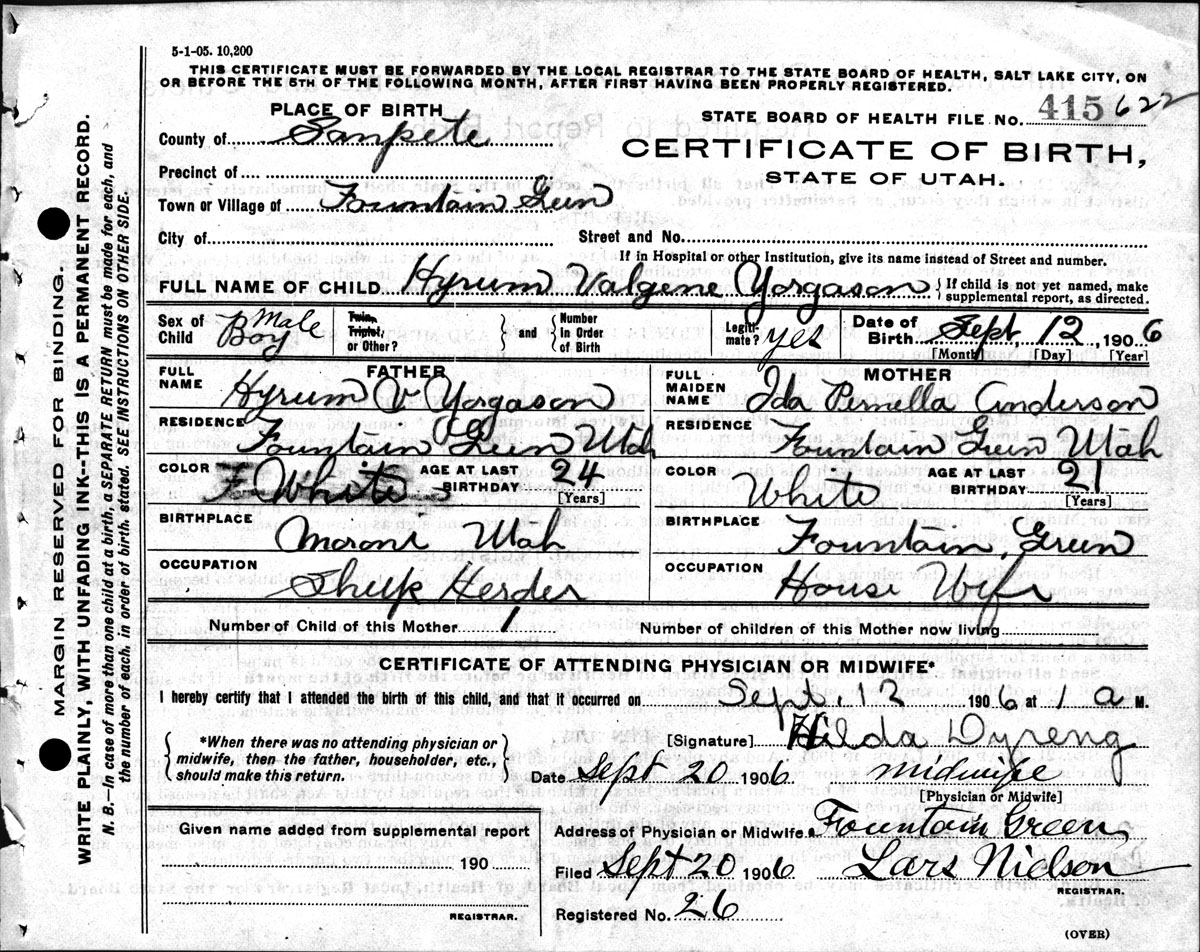 5-1-05. 10,200
THIS CERTIFICATE MUST BE FORWARDED BY THE LOCAL REGISTRAR TO THE STATE BOARD OF HEALTH, SALT LAKE CITY, ON
OR BEFORE THE 5TH OF THE FOLLOWING MONTH, AFTER FIRST HAVING BEEN PROPERLY REGISTERED.
PLACE OF BIRTH
STATE BOARD OF HEALTH FILE NO. 415 622
County of Sanpete
CERTIFICATE OF BIRTH,
STATE OF UTAH.
Precinct of
Town or Village of Fountain Green
City of Street and No.
If in Hospital or other Institution, give its name instead of Street and number.
FULL NAME OF CHILD Hyrum Valgene Yorgason { If child is not yet named, make supplemental report, as directed.
Sex of Child Male Boy Twin, Triplet, or Other? } and { Number in Order of Birth Legiti- mate? yes Date of Birth Sept, 12, 1906
[Month] [Day] [Year]
FATHER
FULL NAME Hyrum V Yorgason
RESIDENCE Fountain Green Utah
COLOR White AGE AT LAST BIRTHDAY 24 [Years]
BIRTHPLACE Moroni Utah
OCCUPATION Sheep Herder
MOTHER
FULL MAIDEN NAME Ida Pernella Anderson
RESIDENCE Fountain Green Utah
COLOR White AGE AT LAST BIRTHDAY 21 [Years]
BIRTHPLACE Fountain, Green
OCCUPATION House Wife
Number of Child of this Mother 1 Number of children of this Mother now living
CERTIFICATE OF ATTENDING PHYSICIAN OR MIDWIFE*
I hereby certify that I attended the birth of this child, and that it occurred on Sept. 12 1906 at 1 a M.
[Signature] Hilda Dyreng
{ *When there was no attending physician or midwife, then the father, householder, etc., should make this return. }
Date Sept 20 1906. midwife
[Physician or Midwife]
Given name added from supplemental report
190
REGISTRAR.
Address of Physician or Midwife Fountain Green
Filed Sept 20 1906 Lars Nielson
REGISTRAR.
Registered No. 26
(OVER)
MARGIN RESERVED FOR BINDING.
WRITE PLAINLY, WITH UNFADING INK--THIS IS A PERMANENT RECORD.
N. B.—In case of more than one child at a birth, a SEPARATE RETURN must be made for each, and
the number of each, in order of birth, stated. SEE INSTRUCTIONS ON OTHER SIDE.